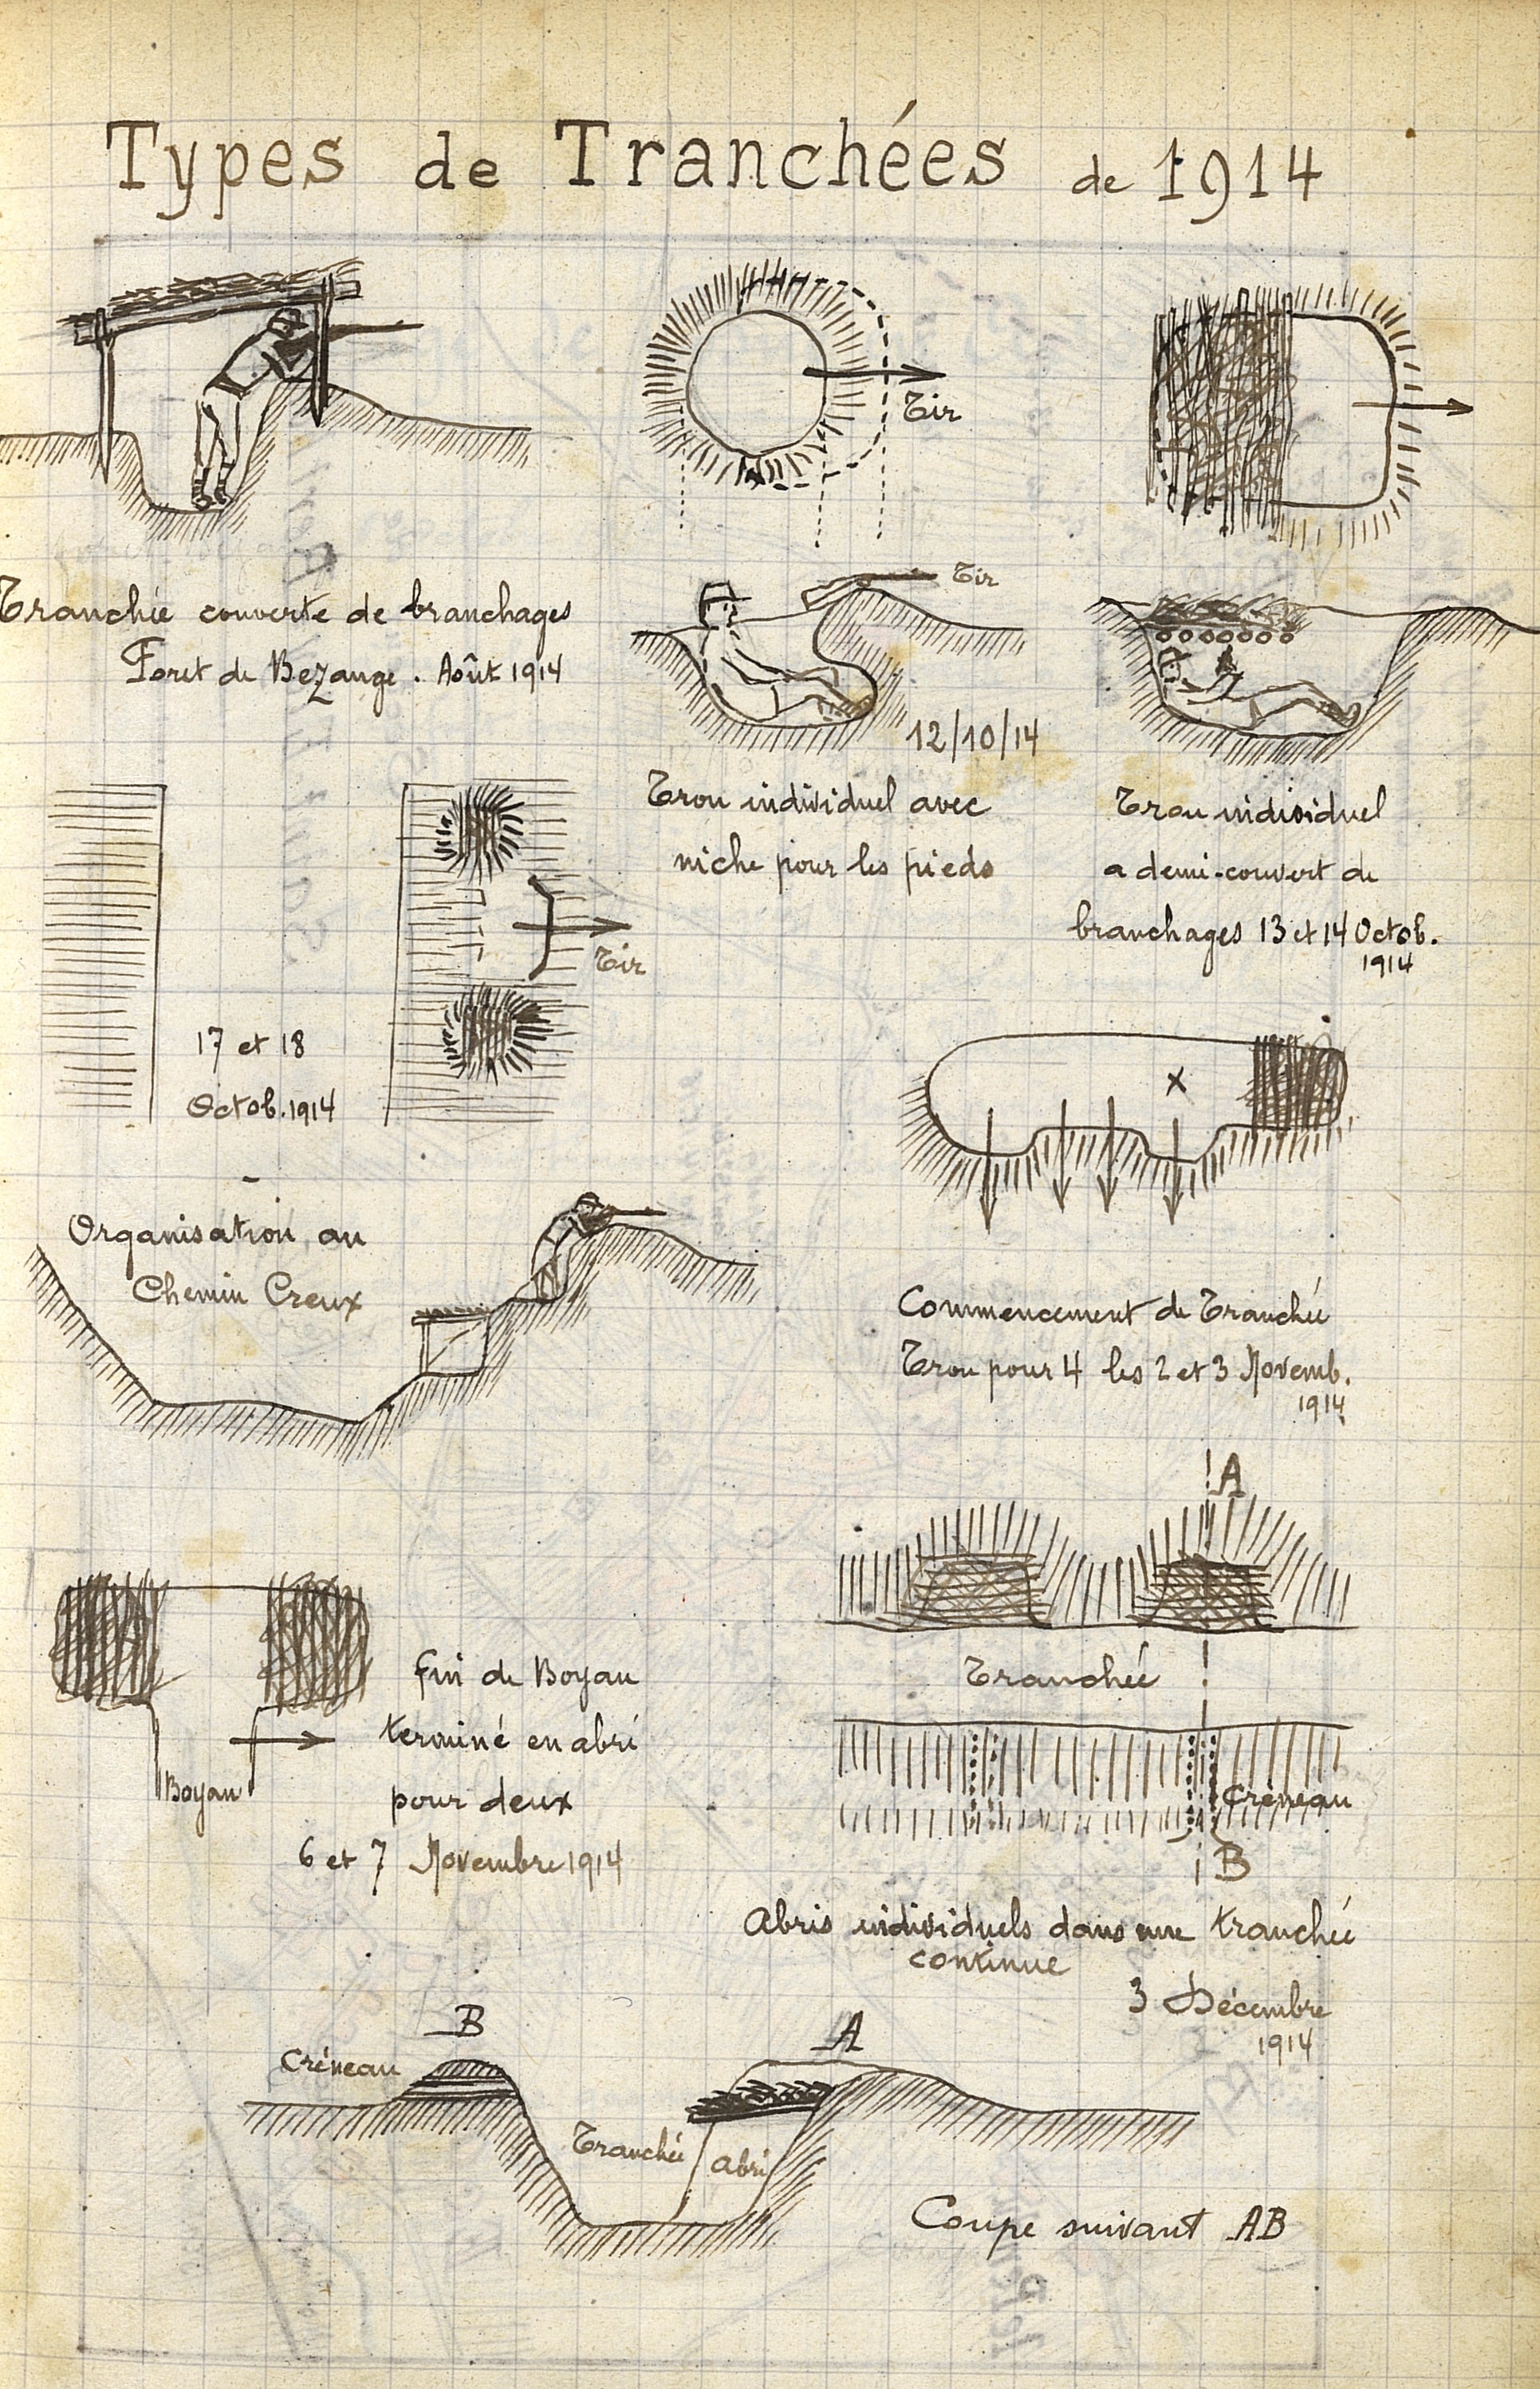 Types de Tranchées de 1914
Tir
Tranchée couverte de branchages
Foret de Bezange. Août 1914
Tir
12/10/14
Trou individuel avec
niche pour les pieds
Trou individuel
a demi-couvert de
branchages 13 et 14 Octob.
1914
Tir
17 et 18
Octob. 1914
Organisation au
Chemin Creux
x
Commencement de Tranchée
Trou pour 4 les 2 et 3 Novemb.
1914
A
Tranchée
Créneau
B
Abris individuels dans une tranchée
continue
3 Décembre
1914
Boyau
fin de Boyau
terminé en abri
pour deux
6 et 7 Novembre 1914
B
A
Créneau
Tranchée
abri
Coupe suivant AB